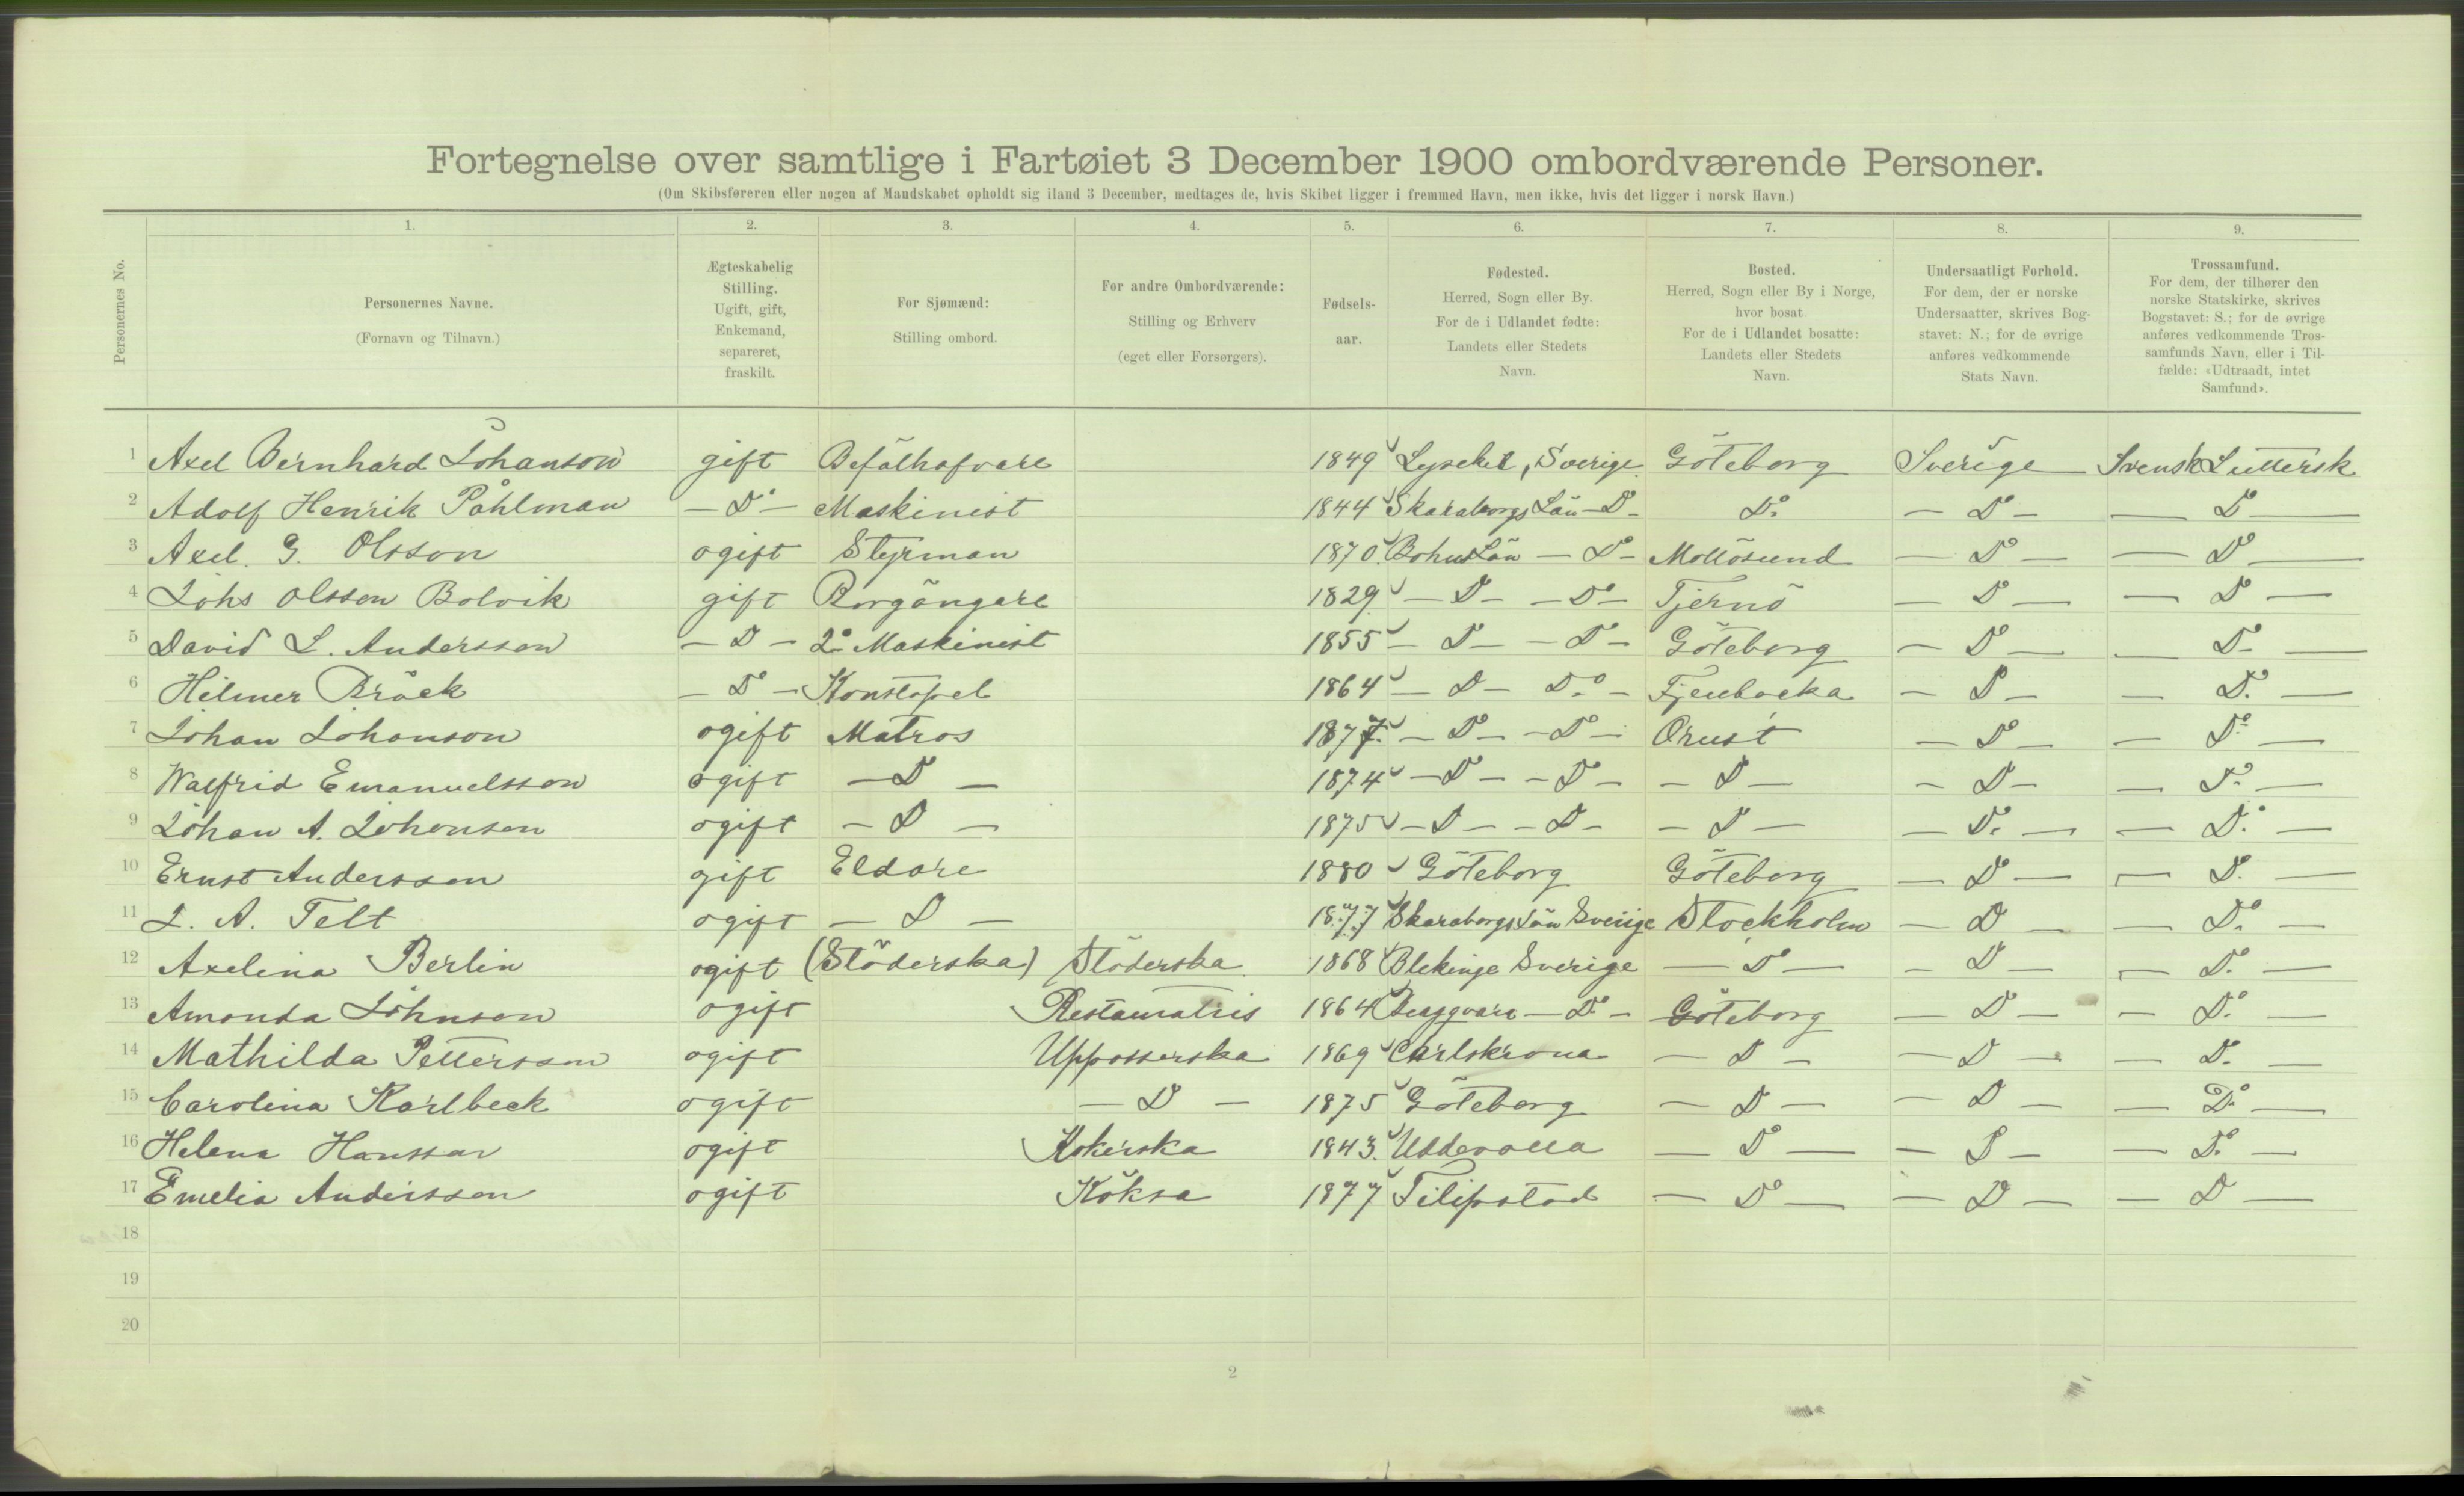 Fortegnelse over samtlige i Fartøiet 3 December 1900 ombordværende Personer.
(Om Skibsføreren eller nogen af Mandskabet opholdt sig iland 3 December, medtages de, hvis Skibet ligger i fremmed Havn, men ikke, hvis det ligger i norsk Havn.)
Personernes No.
1. 2. 3. 4. 5. 6. 7. 8. 9.
Personernes Navne.
(Fornavn og Tilnavn.)
Ægteskabelig
Stilling.
Ugift, gift,
Enkemand,
separeret,
fraskilt.
For Sjømænd:
Stilling ombord.
For andre Ombordværende:
Stilling og Erhverv
(eget eller Forsørgers).
Fødsels-
aar.
Fødested.
Herred, Sogn eller By.
For de i Udlandet fødte:
Landets eller Stedets
Navn.
Bosted.
Herred, Sogn eller By i Norge,
hvor bosat.
For de i Udlandet bosatte:
Landets eller Stedets
Navn.
Undersaatligt Forhold.
For dem, der er norske
Undersaatter, skrives Bog-
stavet: N.; for de øvrige
anføres vedkommende
Stats Navn.
Trossamfund.
For dem, der tilhører den
norske Statskirke, skrives
Bogstavet: S.; for de øvrige
anføres vedkommende Tros-
samfunds Navn, eller i Til-
fælde: «Udtraadt, intet
Samfund».
1 Axel Bernhard Johanson gift Befälhafvare 1849 Lysekil, Sverige Göteborg Sverige Svensk Luttersk
2 Adolf Henrik Påhlman — Do — Maskinist 1844 Skaraborgs Län — Do — Do — Do — — Do —
3 Axel. G. Olsson ogift Styrman 1870. Bohus Län — Do — Mollösund — Do — — Do —
4 Johs Olsson Bolvik gift Rorgängare 1829. — Do — — Do — Tjernö — Do — — Do —
5 David L. Andersson — D — 2e Maskinist 1855 — Do — — Do — Göteborg — Do — — Do —
6 Hilmer Bräck — Do — Konstapel 1864 — D — Do — Fjellbacka — Do — — Do —
7 Johan Johanson ogift Matros 1877. — Do — — Do — Orust — Do — — Do —
8 Walfrid Emanuelsson ogift — Do — 1874 — Do — — Do — — D — — D — — Do —
9 Johan A. Johonson ogift — D — 1875 — D — — D — — D — — Do — — Do —
10 Ernst Andersson gift Eldare 1880 Göteborg Göteborg — Do — — Do —
11 J. A. Telt ogift — D — 1877 Skaraborgs Län Sverige Stockholm — D — — Do —
12 Axelina Berlin ogift (Stöderska) Stöderska 1868 Blekinge Sverige — Do — — D — — Do —
13 Amonda Johnson ogift Restauratris 1864 — Do — Göteborg — Do — — Do —
14 Mathilda Pettersson ogift Uppasserska 1869 Carlskrona — D — — D — — Do —
15 Carolina Karlbeck ogift — D — 1875 Göteborg — D — — D — — Do —
16 Helena Hansson ogift Kokerska 1843. Uddevalla — Do — — Do — — Do —
17 Emelia Andersson ogift Köksa 1877 Filipstad — Do — — D — — Do —
18
19
20
2